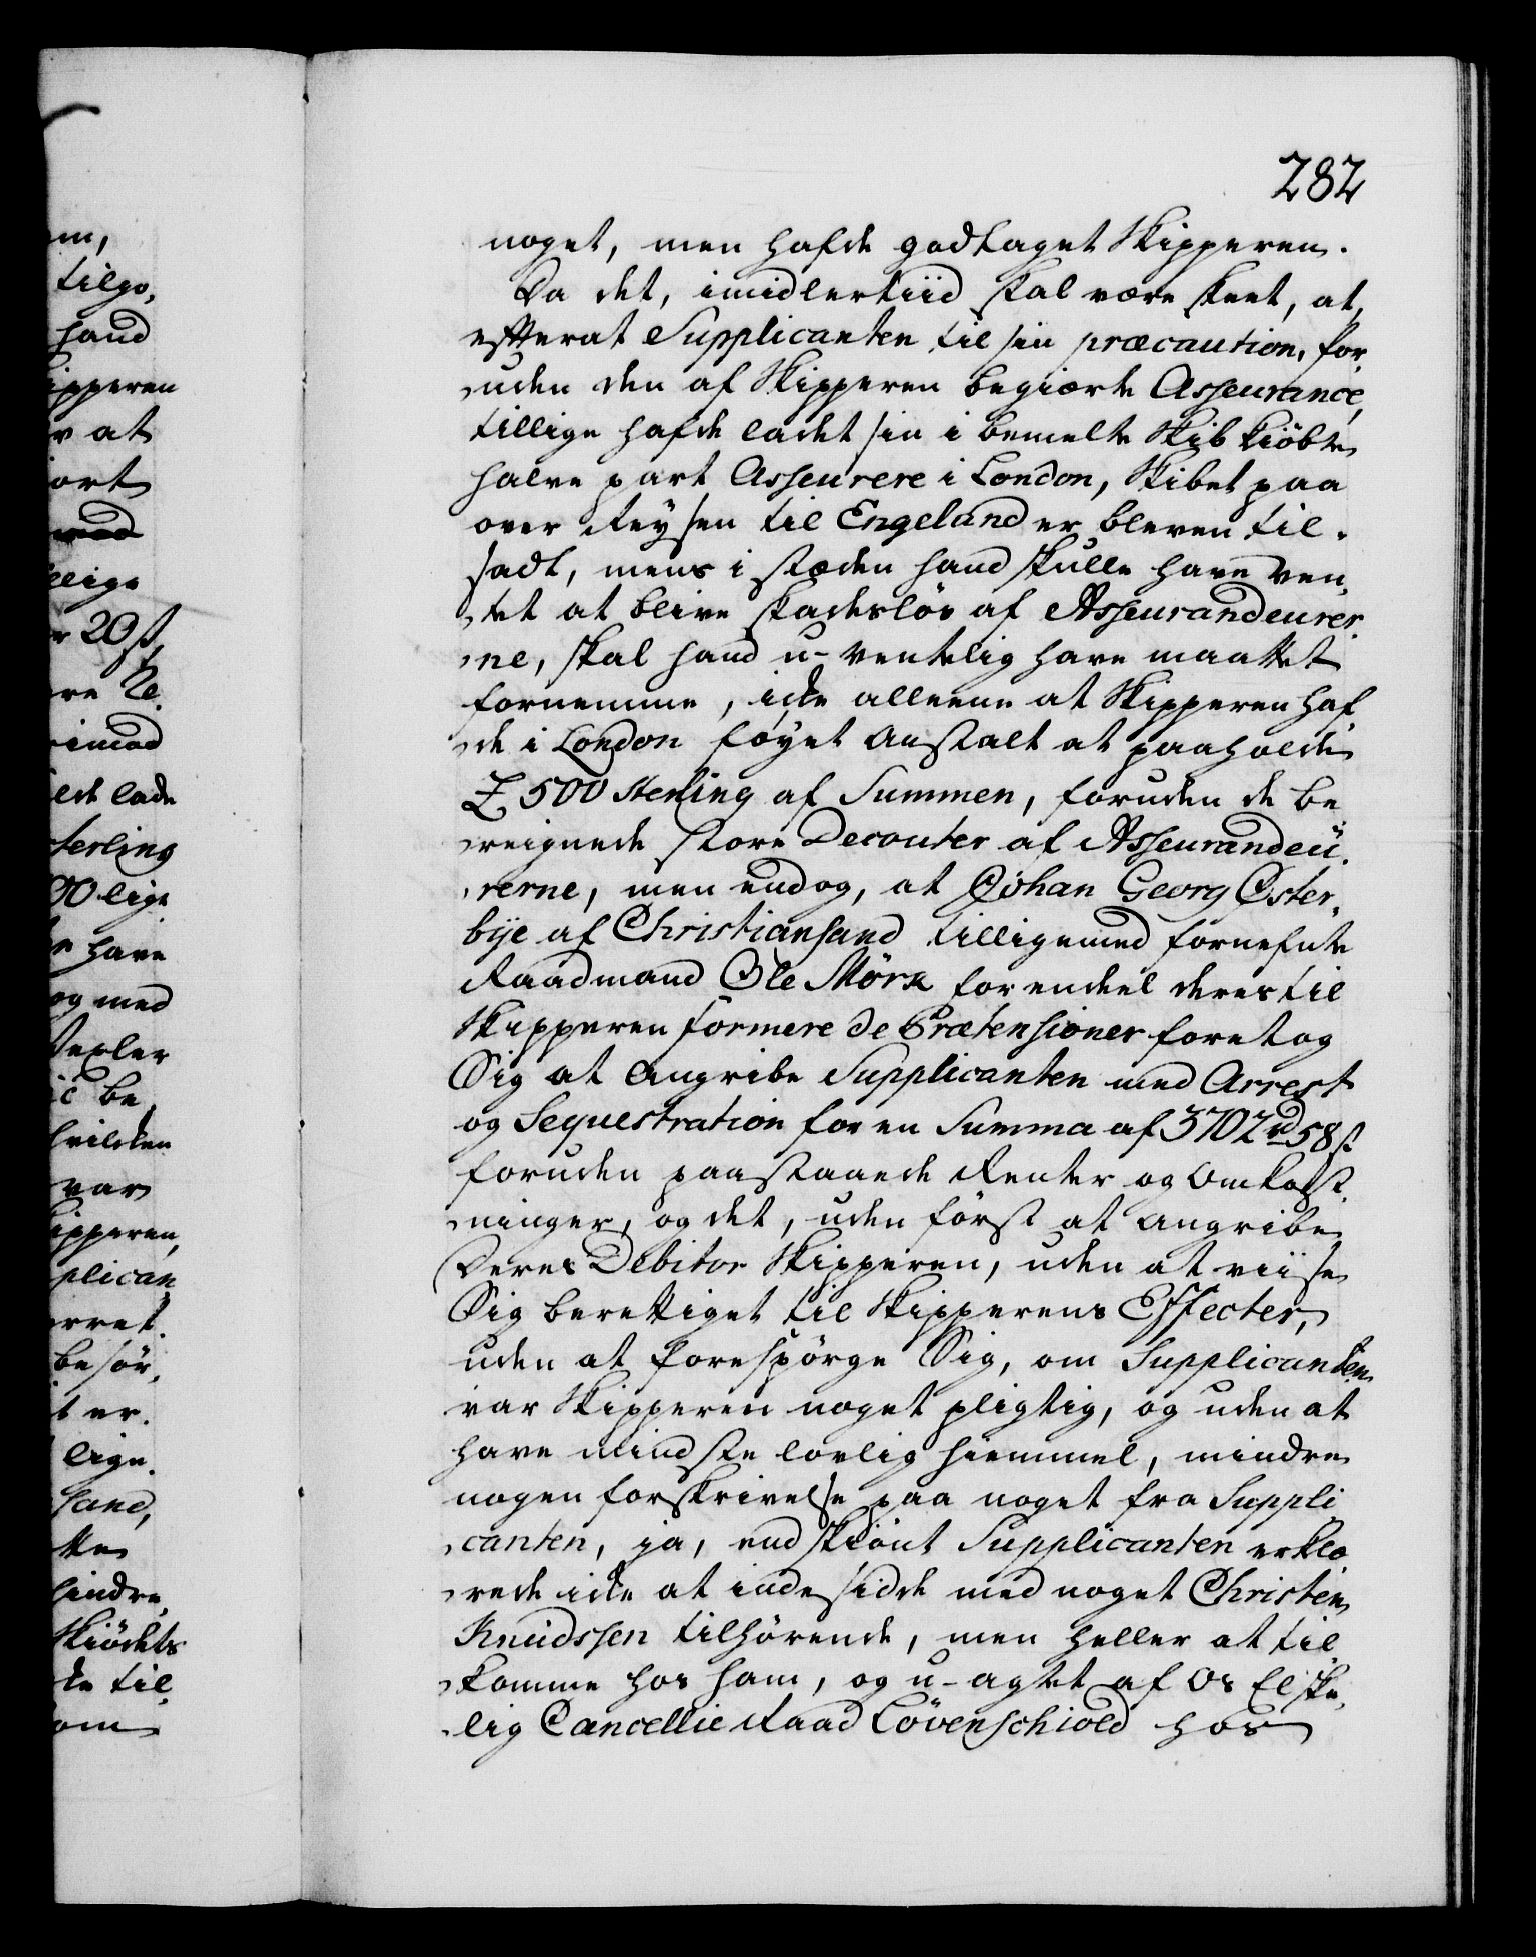 282
noget, men hafde godtaget Skipperen.
Da det, imidlertiid skal være skeet, at,
efterat Supplicanten til sin præcaution, for-
uden den af Skipperen begiærte Asseurance,
tillige hafde ladet sin i bemelte Skib kiöbte
halve part Asseurere i London, Skibet paa
over Reysen til Engeland er bleven til-
sadt, mens i stæden hand skulle have ven-
tet at blive skadeslös af Asseurandeurer-
ne, skal hand u-ventelig have maattet
fornemme, icke alleene at Skipperen haf-
de i London föyet Anstalt at paaholde
£ 500 Sterling af Summen, foruden de be-
reignede store Decouter af Asseurandeü-
rerne, men endog, at Johan Georg Öster-
bye af Christiansand tilligemed fornefnte
Raadmand Ole Mörk for endeel deres til
Skipperen formerede Prætensioner foretog
Sig at angribe Supplicanten med Arrest
og Sequestration for en Summa af 3702 rd 58 s
foruden paastaaede Renter og Omkost-
ninger, og det, uden först at angribe
Deres Debitor Skipperen, uden at viise
Sig berettiget til Skipperens Effecter,
uden at forespörge Sig, om Supplicanten
var Skipperen noget pligtig, og uden at
have mindste lovlig hiemmel, mindre
nogen forskrivelse paa noget fra Suppli-
canten, ja, endskiönt Supplicanten erklæ-
rede icke at indesidde med noget Christen
Knudssen tilhörende, men heller at til-
komme hos ham, og u-agtet af Os Elske-
lig Cancellie Raad Lövenschiold hos
m,
tilgo,
hand
ipperen
at
ort
elige
20 s,
imod
lde lade
terling
00 lige
have
og med
be
hvilcken
var
ipperen,
plican
besör,
t er.
lige.
sand,
lindre,
Skiödets
cke til,
om